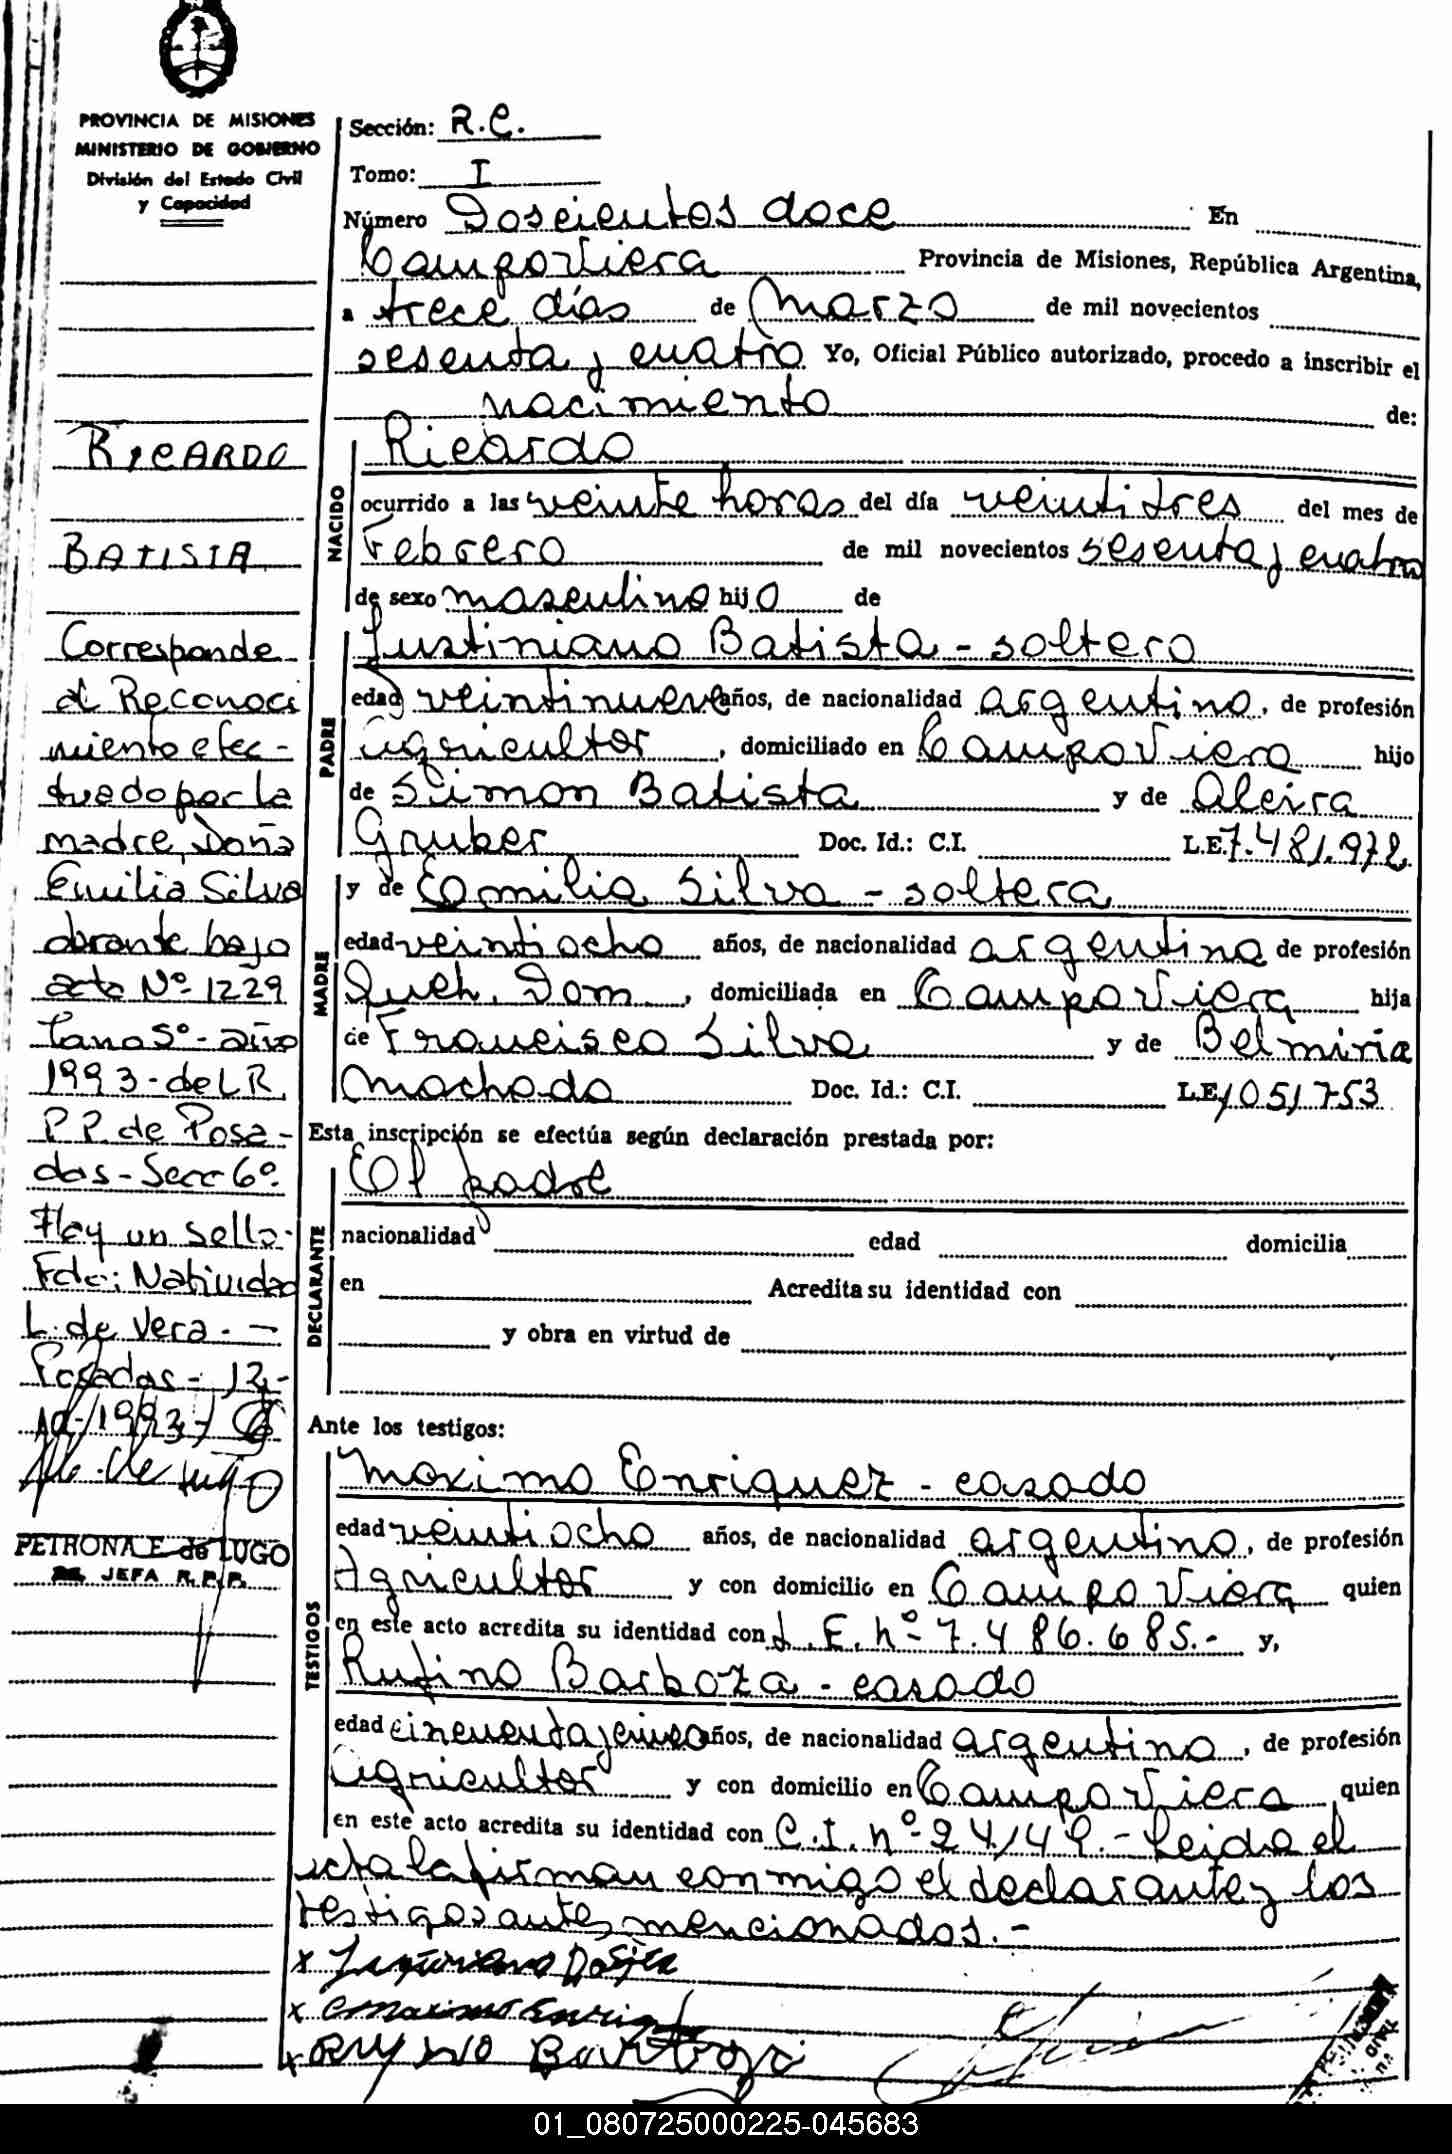 PROVINCIA DE MISIONES
MINISTERIO DE GOBIERNO
División del Estado Civil
y Capacidad
RICARDO
BATISTA
Corresponde
al Reconoci
miento efec-
tuado por la
madre, Doña
Emilia Silva
durante bajo
acta Nº 1229
Tomo 5º - año
1993 - del R.
P.P. de Posa-
das - Secc 6º.
Hay un sello.
Fdo: Natividad
L. de Vera. -
Posadas - 12 -
10 - 1993 -
PETRONA E. de LUGO
JEFA R.P.P.
Sección: R.C.
Tomo: I
Número Doscientos doce En
Campo Viera Provincia de Misiones, República Argentina,
a trece días de Marzo de mil novecientos
sesenta y cuatro Yo, Oficial Público autorizado, procedo a inscribir el
nacimiento de:
NACIDO
Ricardo
ocurrido a las veinte horas del día veintitres del mes de
Febrero de mil novecientos sesenta y cuatro
de sexo masculino hijo de
PADRE
Justiniano Batista - soltero
edad veintinueve años, de nacionalidad argentino, de profesión
agricultor, domiciliado en Campo Viera hijo
de Simon Batista y de Alcira
Gruber Doc. Id.: C.I. L.E. 7.481.972
MADRE
y de Emilia Silva - soltera
edad veintiocho años, de nacionalidad argentina de profesión
Queh. Dom., domiciliada en Campo Viera hija
de Francisco Silva y de Belmiria
Machado Doc. Id.: C.I. L.E. 1051753
Esta inscripción se efectúa según declaración prestada por:
DECLARANTE
El padre
nacionalidad edad domicilia
en Acredita su identidad con
y obra en virtud de
Ante los testigos:
TESTIGOS
Maximo Enriquez - casado
edad veintiocho años, de nacionalidad argentino, de profesión
Agricultor y con domicilio en Campo Viera quien
en este acto acredita su identidad con L.E. nº 7.486.685.- y,
Rufino Barboza - casado
edad cincuenta y cinco años, de nacionalidad argentino, de profesión
agricultor y con domicilio en Campo Viera quien
en este acto acredita su identidad con C.I. nº 24149.- Leida el
acta la firman conmigo el declarante y los
testigos antes mencionados.-
x Justiniano Batista
x Maximo Enriquez
x Rufino Barboza
01_080725000225-045683